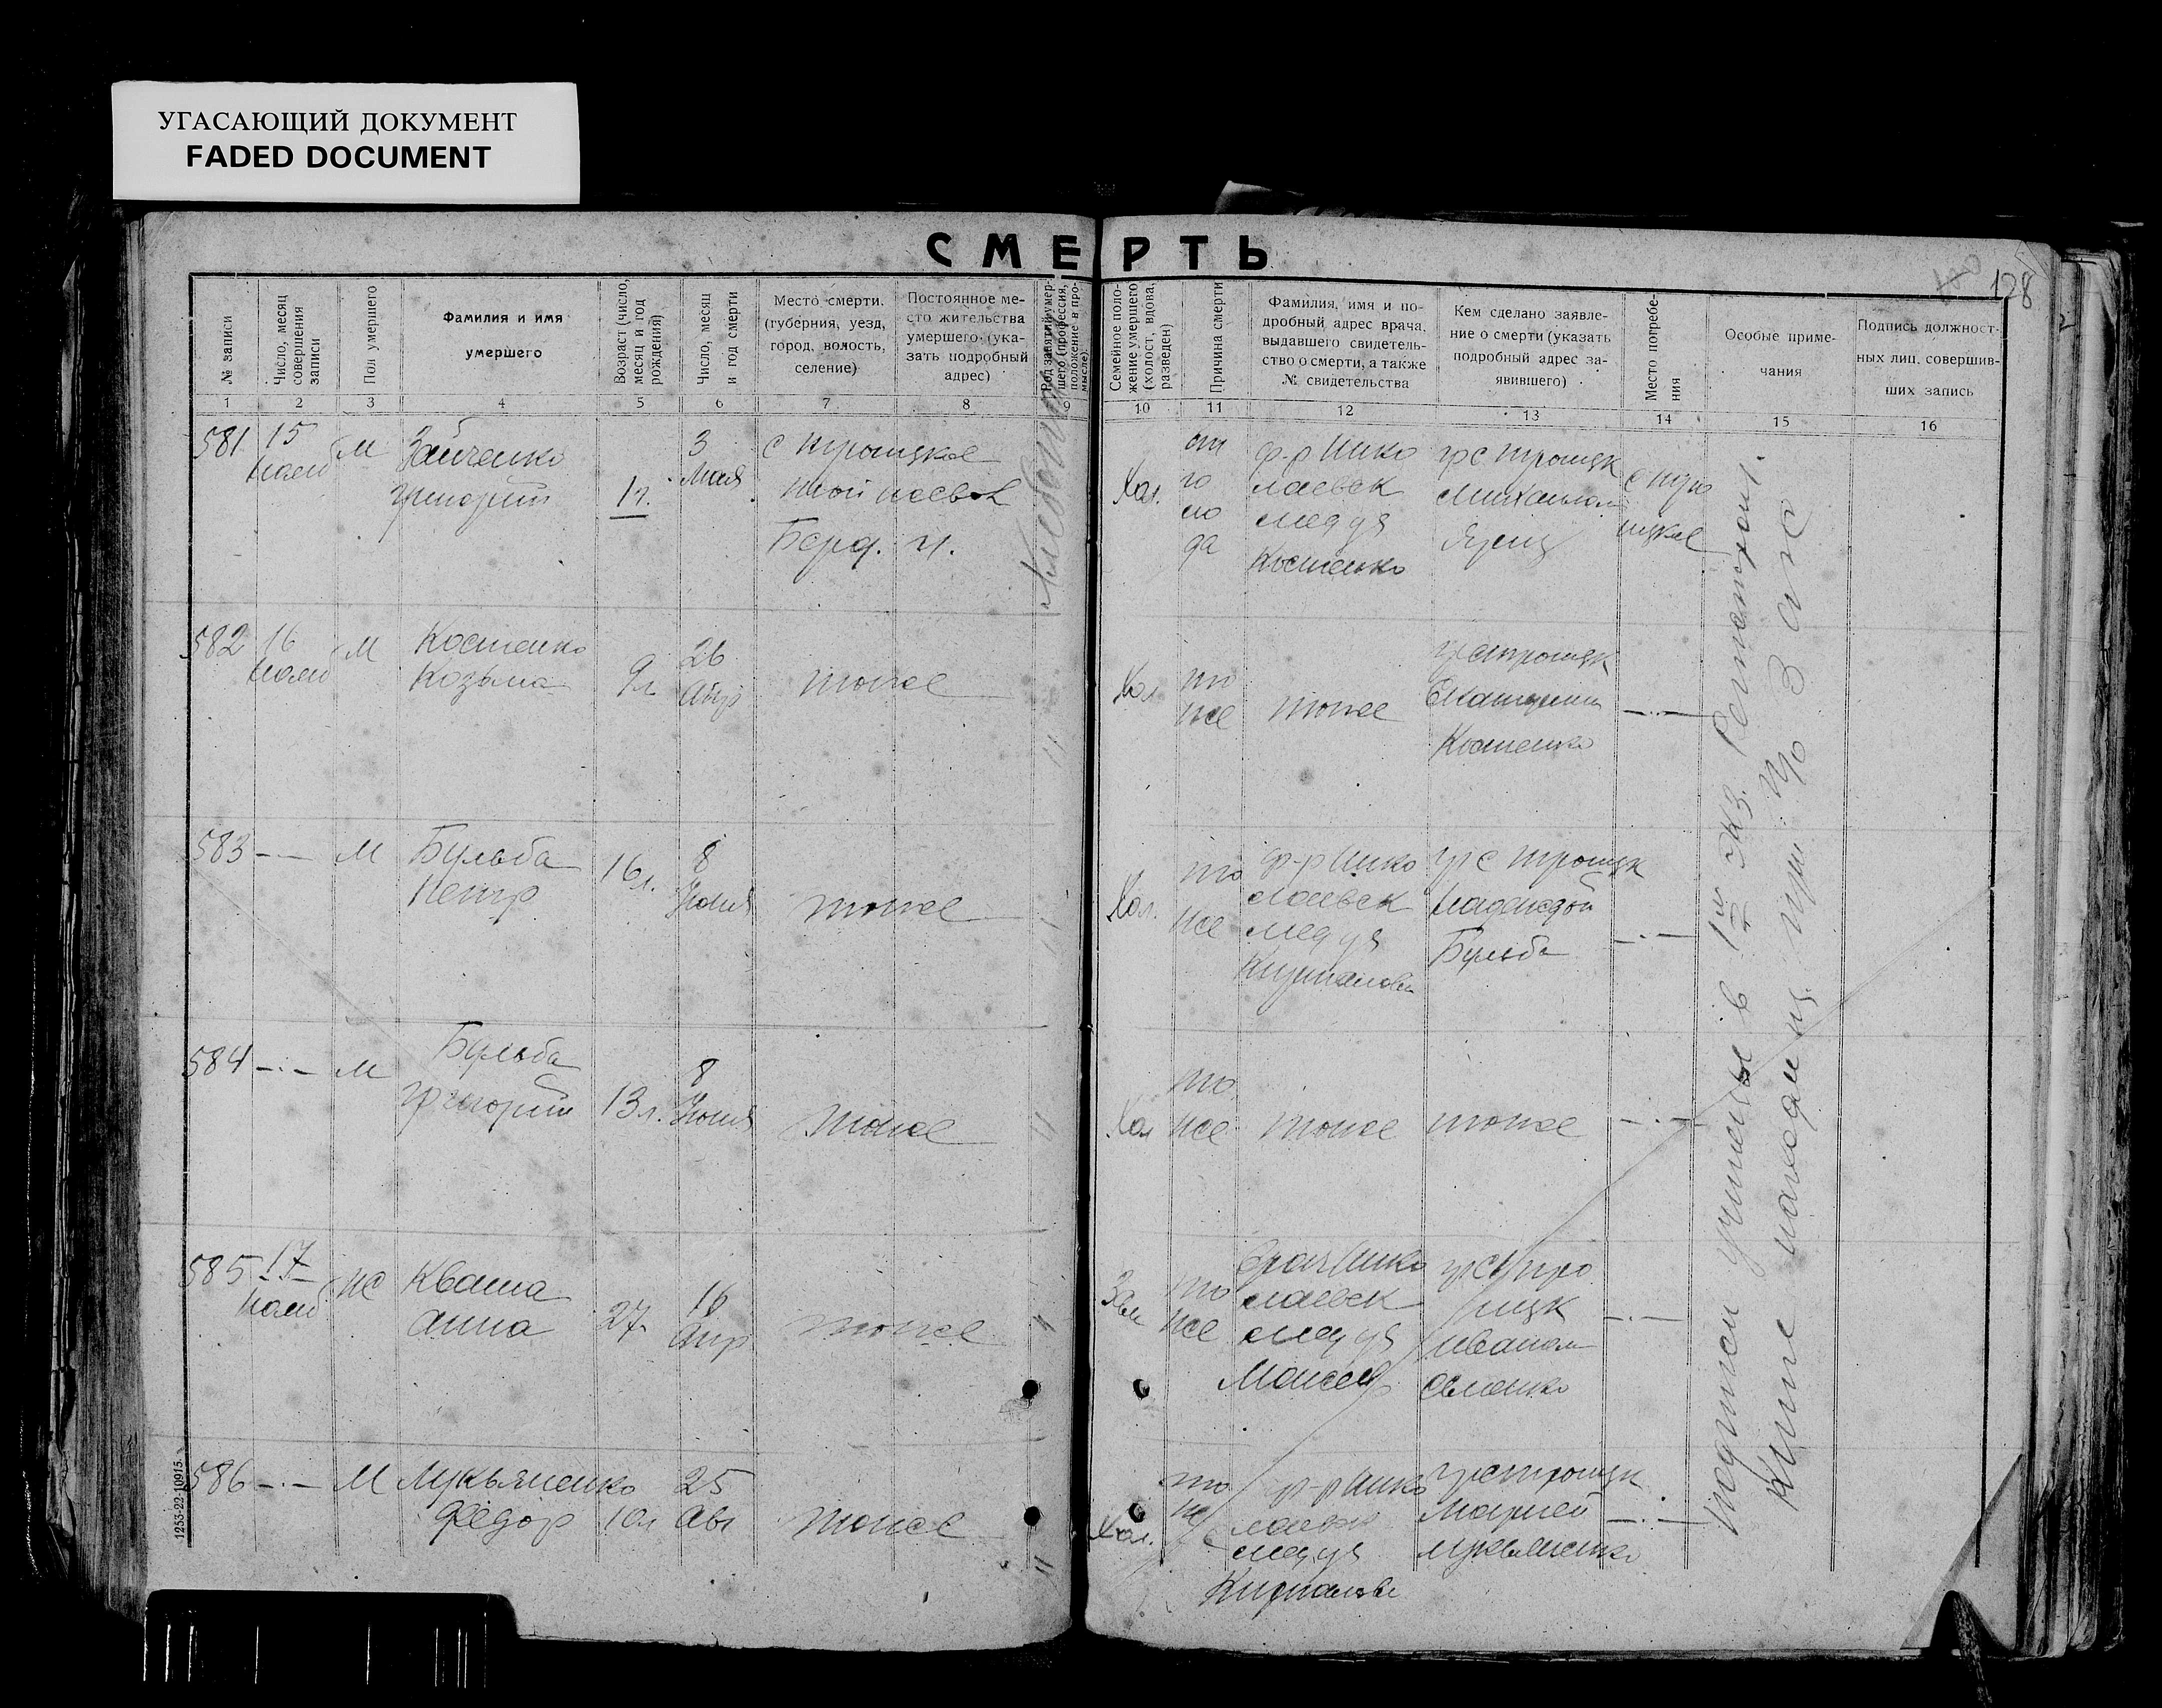 УГАСАЮЩИЙ ДОКУМЕНТ
FADED DOCUMENT
СМЕРТЬ
128
№ записи
Число, месяц
совершения
записи
Пол умершего
Фамилия и имя
умершего
Возраст (число,
месяц и год
рождения)
Число, месяц
и год смерти
Место смерти.
(губерния, уезд,
город, волость,
селение)
Постоянное ме-
сто жительства
умершего (ука-
зать подробный
адрес)
Род занятий умер-
шего (профессия,
положение в про-
мысле)
Семейное поло-
жение умершего
(холост, вдова,
разведен)
Причина смерти
Фамилия, имя и по-
дробный адрес врача,
выдавшего свидетель-
ство о смерти, а также
№ свидетельства
Кем сделано заявле-
ние о смерти (указать
подробный адрес за-
явившего)
Место погребе-
ния
Особые приме-
чания
Подпись должност-
ных лиц, совершив-
ших запись
1 2 3 4 5 6 7 8 9 10 11 12 13 14 15 16
581 15 М Зайченко 1г. 3 с троицкое
нояб григорий Мая
Берд. у.
Хол. от го ло да ф-р Нико
лаевск
мед уч
Костенко
гр с троицк
582 16 М Костенко 9л 26 тоже
нояб Козьма Апр
Хол то же тоже гр с троицк
Екатерина
Костенко
583 -·- М Бульба 16л. 8 тоже
Петр Июня
Хол. то же ф-р Нико
лаевск
мед уч
гр с троицк
Бульба
-·-
584 -·- М Бульба 13л. 8 тоже
григорий Июня
Хол то же тоже тоже -·-
585 17 ж Кваша 27 16 тоже
нояб Анна Апр
Зам то же Врач Нико
лаевск
мед уч
гр с трo
ицк
Иваном
-·-
586 -·- М Лукьяненко 10л 25 тоже
Федор Авг
Хол. то же ф-р Нико
лаевск
мед уч
гр с троицк
Марией
Лукьяненко
-·-
Подписи учинены в 1м экз. Регистрац.
Книге находящ. при
1253-22-10915.